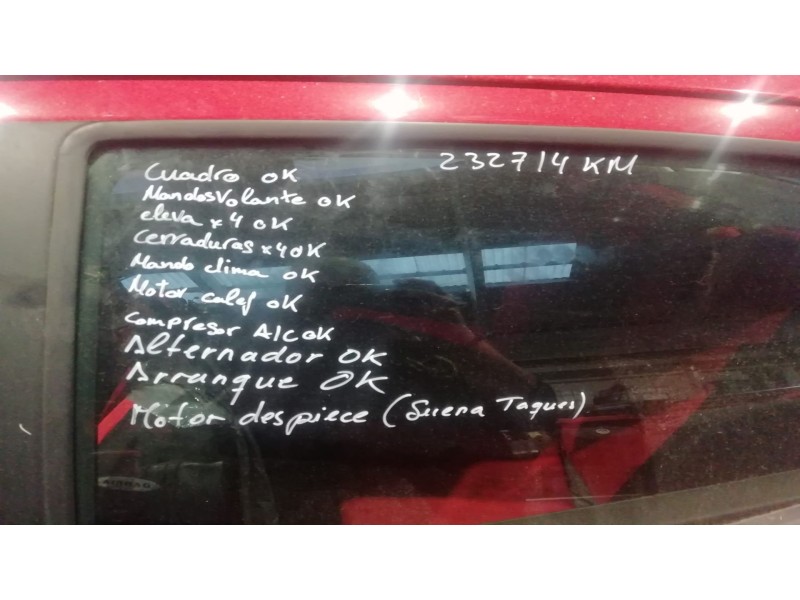 232714 KM
Cuadro OK
Mandos Volante OK
eleva x 4 OK
Cerraduras x 4 OK
Mando clima OK
Motor calef OK
Compresor A/C OK
Alternador OK
Arranque OK
Motor despiece (Suena Taques)
AIRBAG